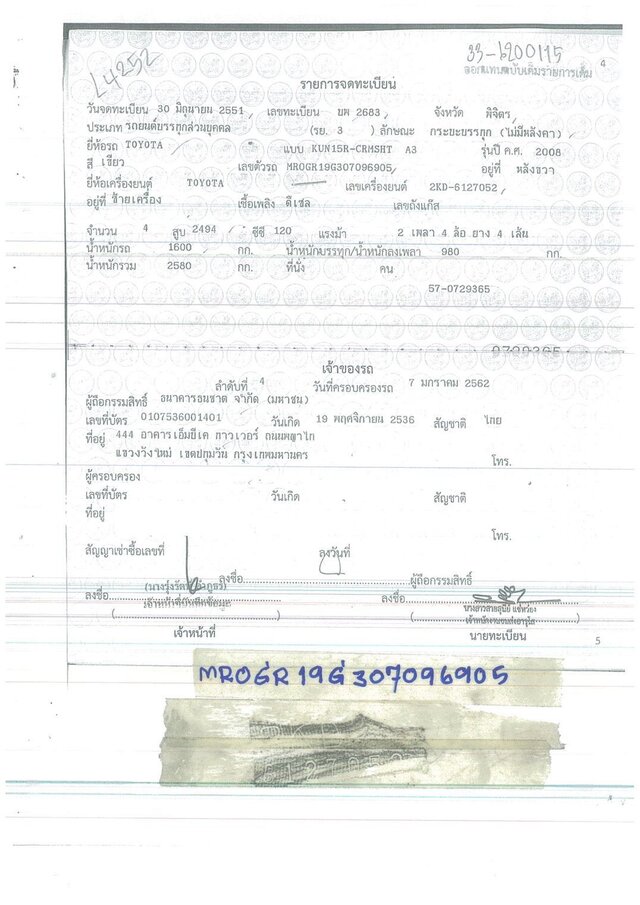 L4252
33-6200115
4
ออกแทนฉบับเดิมรายการเต็ม
รายการจดทะเบียน
วันจดทะเบียน 30 มิถุนายน 2551 เลขทะเบียน บพ 2683 จังหวัด พิจิตร
ประเภท รถยนต์บรรทุกส่วนบุคคล (รย. 3 ) ลักษณะ กระบะบรรทุก (ไม่มีหลังคา)
ยี่ห้อรถ TOYOTA แบบ KUN15R-CRMSHT A3 รุ่นปี ค.ศ. 2008
สี เขียว เลขตัวรถ MROGR19G307096905 อยู่ที่ หลังขวา
ยี่ห้อเครื่องยนต์ TOYOTA เลขเครื่องยนต์ 2KD-6127052
อยู่ที่ ซ้ายเครื่อง เชื้อเพลิง ดีเซล เลขถังแก๊ส
จำนวน 4 สูบ 2494 ซีซี 120 แรงม้า 2 เพลา 4 ล้อ ยาง 4 เส้น
น้ำหนักรถ 1600 กก. น้ำหนักบรรทุก/น้ำหนักลงเพลา 980 กก.
น้ำหนักรวม 2580 กก. ที่นั่ง คน
57-0729365
0729365
เจ้าของรถ
ลำดับที่ 4 วันที่ครอบครองรถ 7 มกราคม 2562
ผู้ถือกรรมสิทธิ์ ธนาคารธนชาต จำกัด (มหาชน)
เลขที่บัตร 0107536001401 วันเกิด 19 พฤศจิกายน 2536 สัญชาติ ไทย
ที่อยู่ 444 อาคารเอ็มบีเค ทาวเวอร์ ถนนพญาไท
แขวงวังใหม่ เขตปทุมวัน กรุงเทพมหานคร
โทร.
ผู้ครอบครอง
เลขที่บัตร วันเกิด สัญชาติ
ที่อยู่
โทร.
สัญญาเช่าซื้อเลขที่ ลงวันที่
ลงชื่อ ผู้ถือกรรมสิทธิ์
ลงชื่อ ลงชื่อ
เจ้าหน้าที่บันทึกข้อมูล
เจ้าหน้าที่ นายทะเบียน
5
MROGR19G307096905